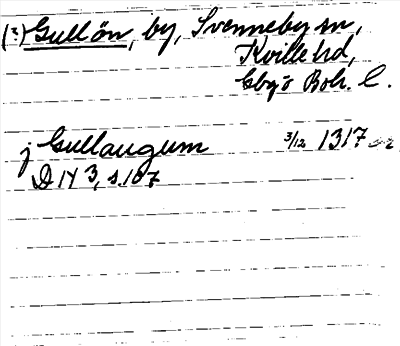 (?) Gullön, by, Svenneby sn,
Kville hd,
Gbgs o Boh. l.
j Gullaugum 3/12 1317
DN 3, s. 107